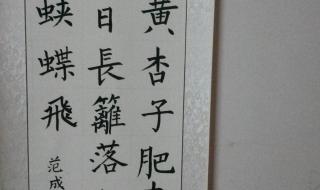 黃杏子肥
日長籬落
蛱蝶飛
范成